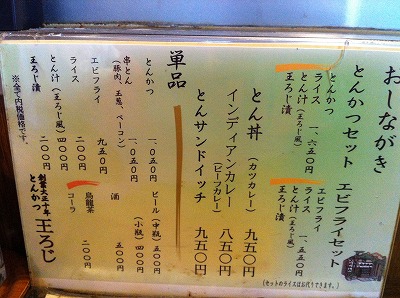 おしながき
とんかつセット
とんかつ
ライス
とん汁(王ろじ風)
王ろじ漬
一、六五〇円
エビフライセット
エビフライ
ライス
とん汁(王ろじ風)
王ろじ漬
一、五五〇円
(セットのライスはお代りできます。)
とん丼(カツカレー) 九五〇円
インディアンカレー(ビーフカレー) 八五〇円
とんサンドイッチ 九五〇円
単品
とんかつ 一、〇五〇円
串とん(豚肉、玉葱、ベーコン) 一、〇五〇円
エビフライ 九五〇円
ライス 二〇〇円
とん汁(王ろじ風) 四〇〇円
王ろじ漬 二〇〇円
ビール(中瓶) 五〇〇円
(小瓶) 四〇〇円
酒 五〇〇円
烏龍茶
コーラ 二〇〇円
※全て内税価格です。
創業大正十年
とんかつ 王ろじ